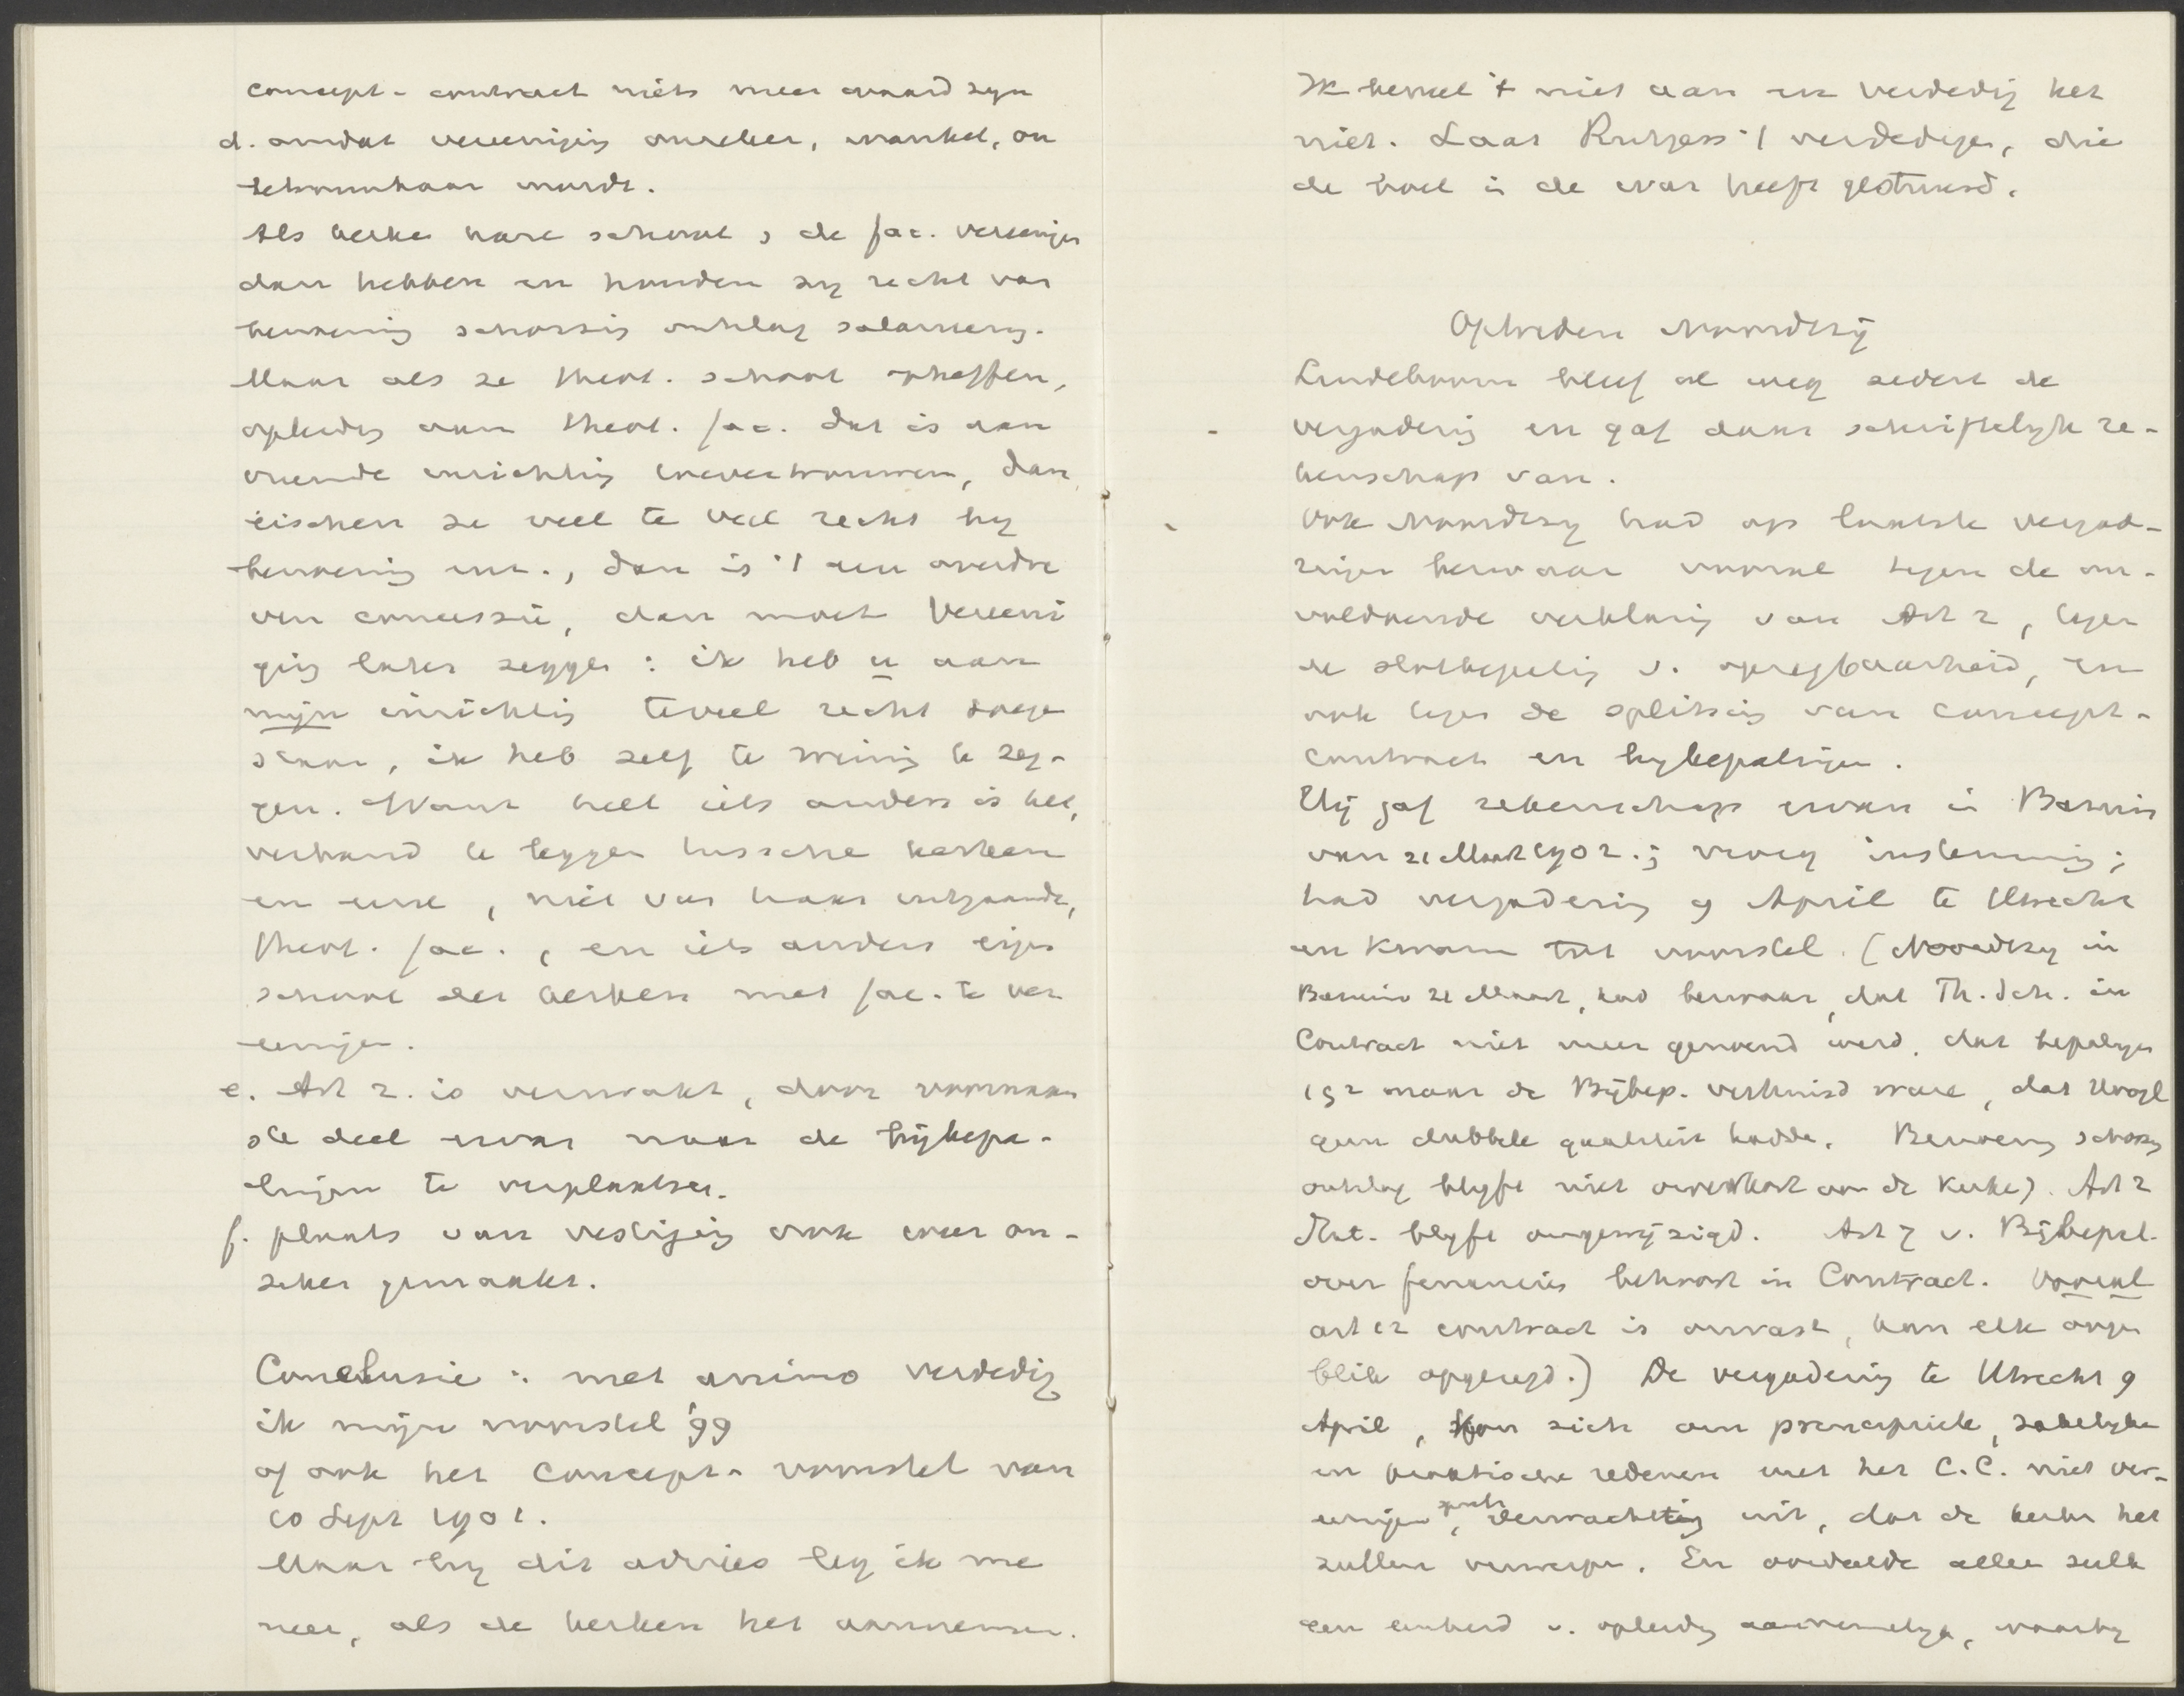 concept-contract niets meer waard zyn
d. omdat vereeniging onzeker, wankel, on
betrouwbaar wordt.
Als kerken hare school & de fac. vereenigen
dan hebben en houden zy recht van
benoeming schorsing ontslag salarieering.
Maar als ze theol. school opheffen,
opleiding aan theol. fac. dat is aan
vreemde inrichting toevertrouwen, dan
eischen ze veel te veel recht by
benoeming enz., dan is 't een overdre
ven concessie, dan moet Vereeni
ging later zeggen: ik heb u aan
mijn inrichting teveel recht toege
staan, ik heb zelf te weinig te zeg-
gen. Want heel iets anders is het,
verband te leggen tusschen kerken
en eene, niet van haar uitgaande,
theol. fac., en iets anders eigen
school der kerken met fac. te ver
eenigen.
e. Art 2. is verzwakt, door voornaam
ste deel ervan naar de bijbepa-
lingen te verplaatsen.
f. plaats van vestiging ook weer on-
zeker gemaakt.
Conclusie: met animo verdedig
ik mijn voorstel '99
of ook het Concept-voorstel van
10 Sept 1901.
Maar by dit advies leg ik me
neer, als de kerken het aannemen.
Ik beveel 't niet aan en verdedig het
niet. Laat Rutgers 't verdedigen, die
de boel in de war heeft gestuurd.
Optreden Noordtzij
Lindeboom bleef al weg sedert de
vergadering en gaf daar schriftelyk re-
kenschap van.
Ook Noordtzy had op laatste vergad-
ringen bezwaar vooral tegen de on-
voldoende verklaring van Art 2, tegen
de slotbepaling v. opzegbaarheid, en
ook tegen de splitsing van concept-
contract en bybepalingen.
Hij gaf rekenschap ervan in Bazuin
van 21 Maart 1902.; vroeg instemming;
had vergadering 9 April te Utrecht
en kwam tot voorstel. (Noordtzy in
Bazuin 21 Maart, had bezwaar, dat Th. Sch. in
Contract niet meer genoemd werd, dat bepalingen
1 5 2 naar de Bijbep. verhuisd ware, dat Hoogl
geen dubbele qualiteit hadde. Benoeming schorsing
ontslag blyft niet onverkort aan de kerken). Art 2
Stat. blyft ongewijzigd. Art 7 v. Bijbepal.
over financien behoort in Contract. Vooral
art 12 contract is onvast, kan elk oogen
blik opgezegd.) De vergadering te Utrecht 9
April, kon zich om principieele, zakelyke
en practische redenen met het C.C. niet ver-
eenigen, sprak verwachting uit, dat de kerken het
zullen verwerpen. En oordeelde alleen zulk
een eenheid v. opleiding aannemelyk, waarby